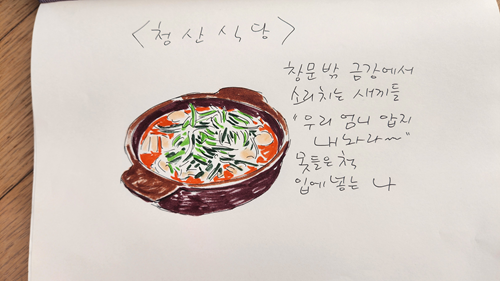 <청산식당>
창문밖 금강에서
소리치는 새끼들
"우리 엄니 압지
내놔라~"
못들은척
입에 넣는 나